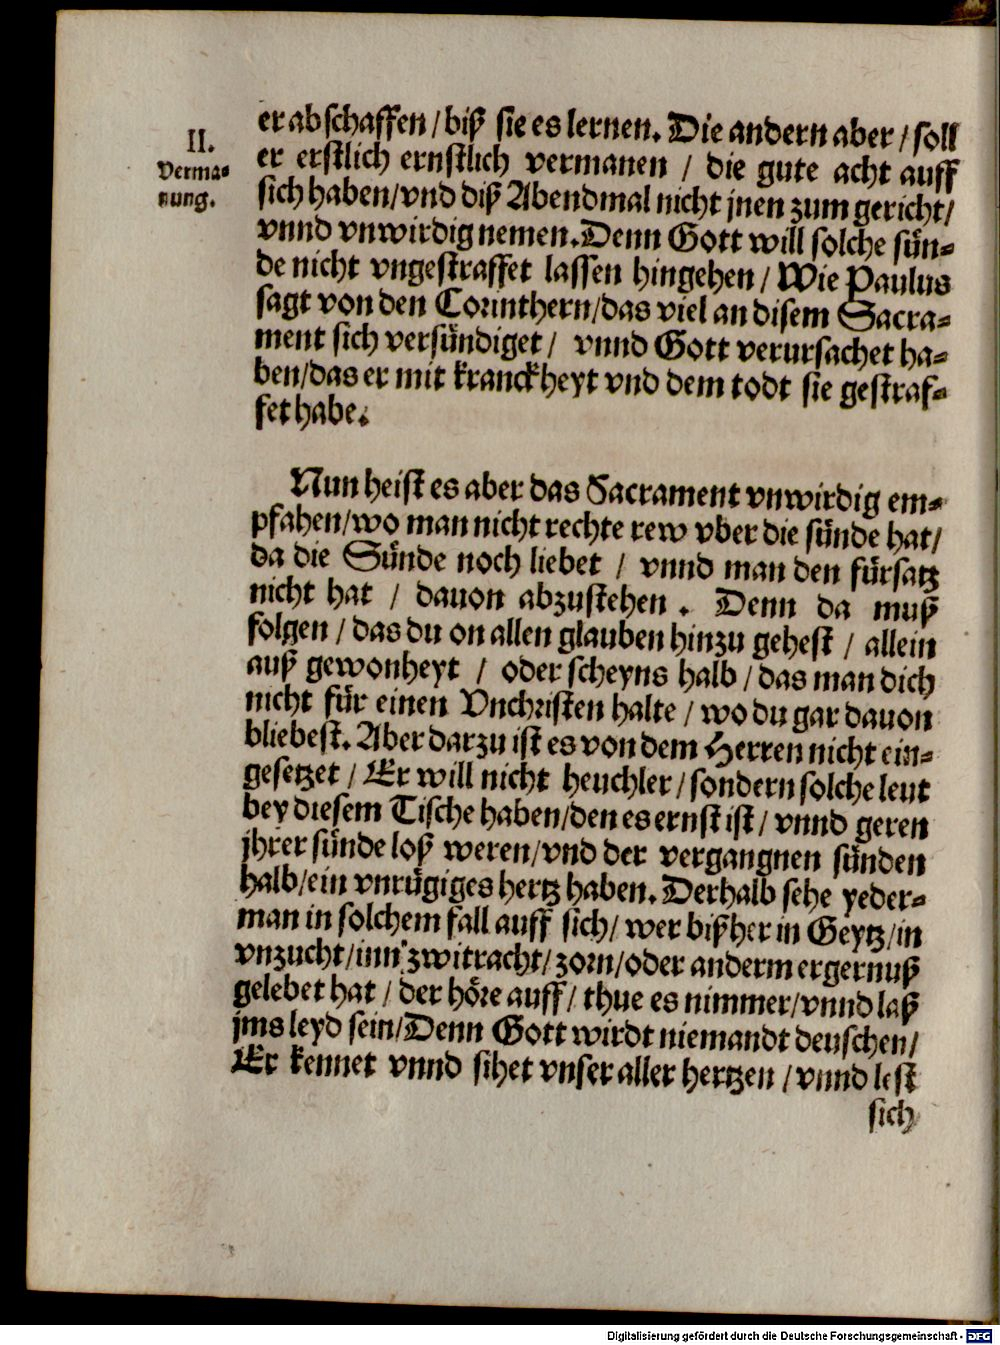 II.
Verma⸗
nung.
er abschaffen / biß sie es lernen. Die andern aber / soll
er erstlich ernstlich vermanen / die gute acht auff
sich haben / vnd diß Abendmal nicht jnen zum gericht /
vnnd vnwirdig nemen. Denn Gott will solche sün⸗
de nicht vngestraffet lassen hingehen / Wie Paulus
sagt von den Corinthern / das viel an disem Sacra⸗
ment sich versündiget / vnnd Gott verursachet ha⸗
ben / das er mit kranckheyt vnd dem todt sie gestraf⸗
fet habe.
Nun heist es aber das Sacrament vnwirdig em⸗
pfahen / wo man nicht rechte rew vber die sünde hat /
da die Sünde noch liebet / vnnd man den fürsatz
nicht hat / dauon abzustehen . Denn da muß
folgen / das du on allen glauben hinzu gehest / allein
auß gewonheyt / oder scheyns halb / das man dich
nicht für einen Vnchristen halte / wo du gar dauon
bliebest. Aber darzu ist es von dem Herren nicht ein⸗
gesetzet / Er will nicht heuchler / sondern solche leut
bey diesem Tische haben / den es ernst ist / vnnd geren
jhrer sünde loß weren / vnd der vergangnen sünden
halb / ein vnrügiges hertz haben. Derhalb sehe yeder⸗
man in solchem fall auff sich / wer bißher in Geytz / in
vnzucht / inn zwitracht / zorn / oder anderm ergernuß
gelebet hat / der höre auff / thue es nimmer / vnnd laß
jms leyd sein / Denn Gott wirdt niemandt deuschen /
Er kennet vnnd sihet vnser aller hertzen / vnnd lest
sich
Digitalisierung gefördert durch die Deutsche Forschungsgemeinschaft - DFG